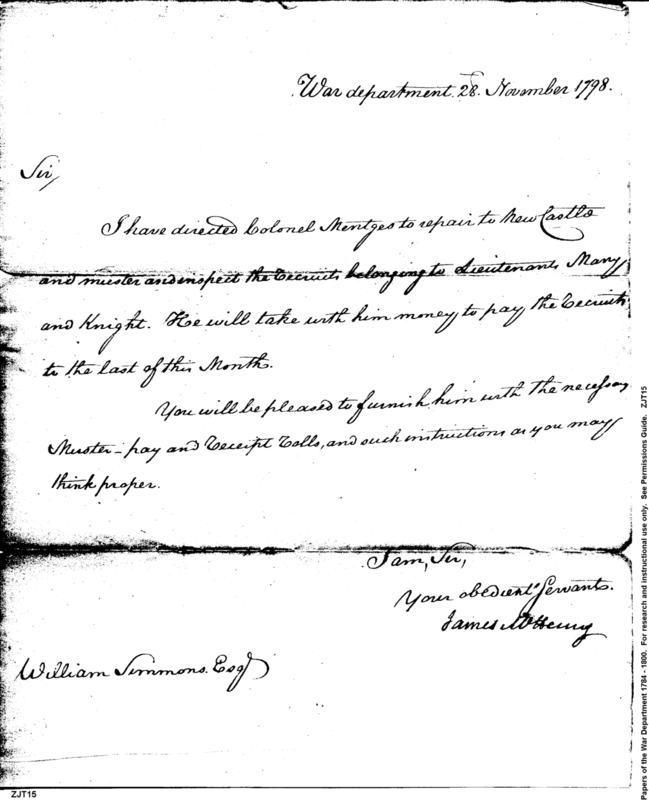 War department 28. November 1798.
Sir,
I have directed Colonel Mentges to repair to New Castle
and muster and inspect the Recruits belonging to Lieutenants Many
and Knight. He will take with him money to pay the Recruits
to the last of this Month.
You will be pleased to furnish him with the necessary
Muster-pay and Receipt Rolls, and such instructions as you may
think proper.
I am, Sir,
Your obedient Servant.
James McHenry
William Simmons. Esqr
ZJT15
Papers of the War Department 1784 - 1800. For research and instructional use only. See Permissions Guide. ZJT15